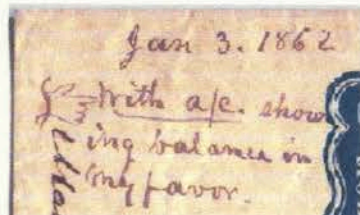 Jan 3. 1862
With a/c. show
ing balance in
my favor.